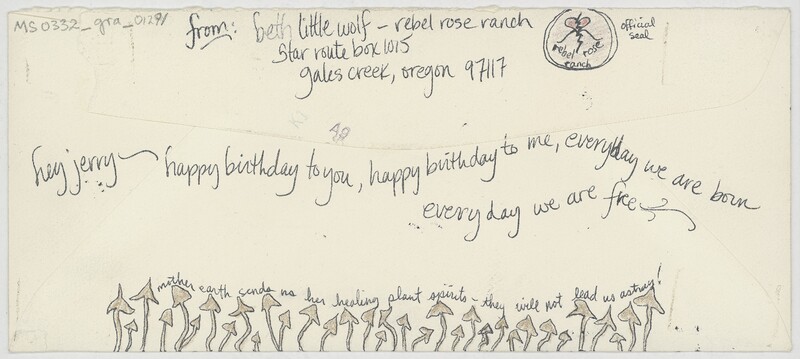 MS0332_gra_0129/
from: beth little wolf – rebel rose ranch
Star route box 1015
gales creek, oregon 97117
rebel rose
ranch
official
seal
hey jerry — happy birthday to you, happy birthday to me, everyday we are born
every day we are free
mother earth sends us her healing plant spirits – they will not lead us astray!